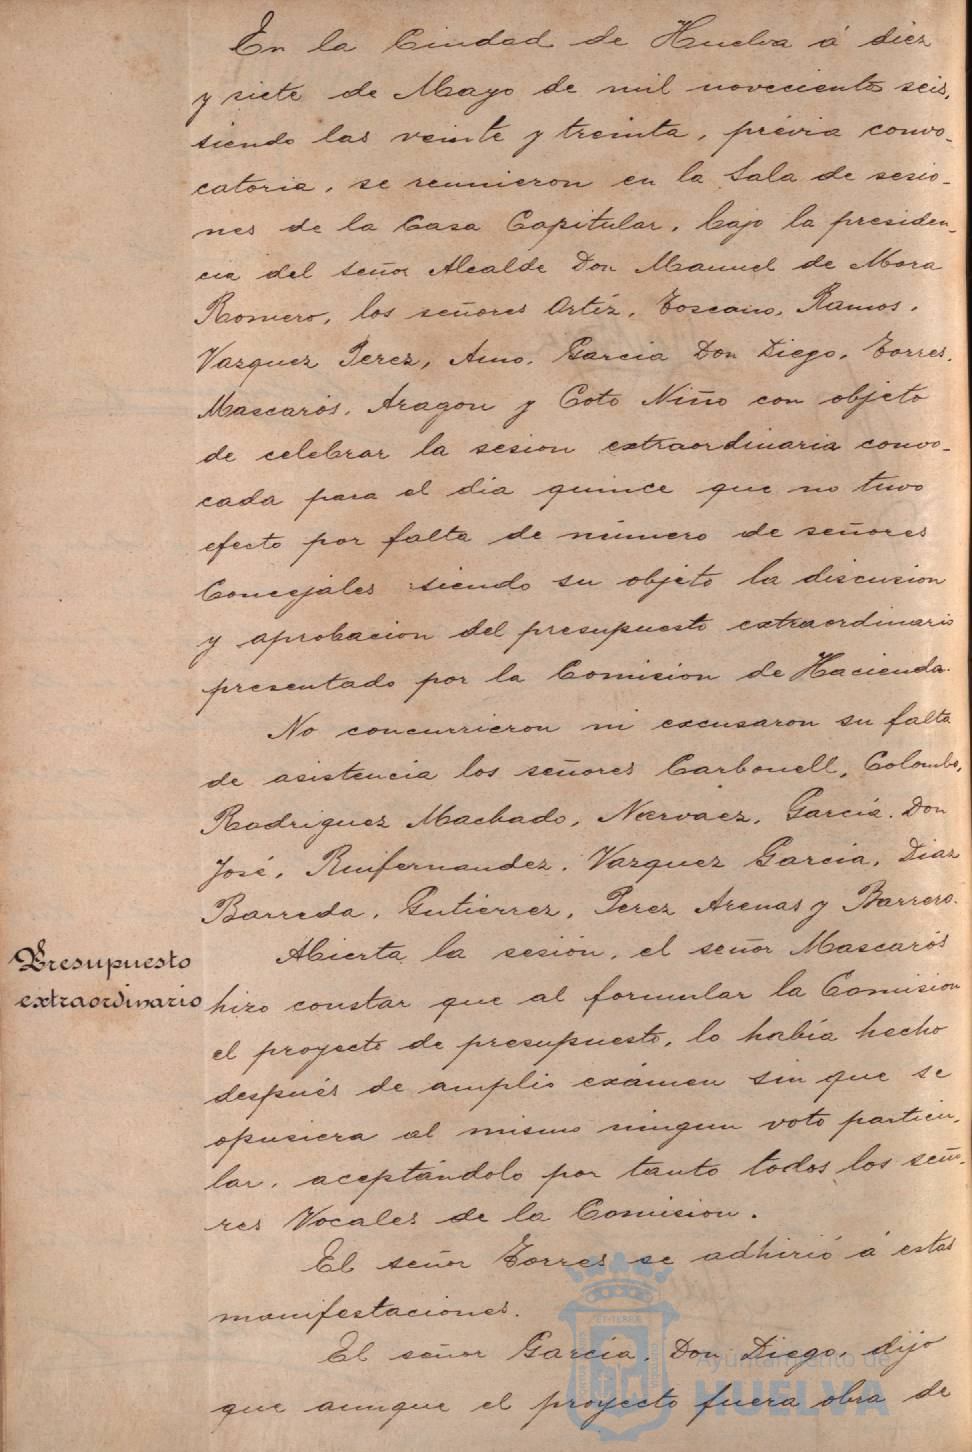 En la Ciudad de Huelva á diez
y siete de Mayo de mil novecientos seis,
siendo las veinte y treinta, prévia convo-
catoria, se reunieron en la Sala de sesio-
nes de la Casa Capitular, bajo la presiden-
cia del señor Alcalde Don Manuel de Mora
Romero, los señores Ortíz, Toscano, Ramos,
Vazquez Perez, Amo, García Don Diego, Torres,
Mascarós, Aragon y Coto Niño con objeto
de celebrar la sesion extraordinaria convo-
cada para el dia quince que no tuvo
efecto por falta de número de señores
Concejales siendo su objeto la discusion
y aprobacion del presupuesto extraordinario
presentado por la Comision de Hacienda.
No concurrieron ni excusaron su falta
de asistencia los señores Carbonell, Colombo,
Rodriguez Machado, Narvaez, García Don
José, Ruifernandez, Vazquez García, Diaz
Barreda, Gutierrez, Perez Arenas y Barrero.
Presupuesto
extraordinario
Abierta la sesión, el señor Mascarós
hizo constar que al formular la Comision
el proyecto de presupuesto, lo había hecho
después de amplio exámen sin que se
opusiera al mismo ningun voto particu-
lar, aceptándolo por tanto todos los seño-
res Vocales de la Comision.
El señor Torres se adhirió á estas
manifestaciones.
El señor García, Don Diego, dijo
que aunque el proyecto fuera obra de
Ayuntamiento de
HUELVA